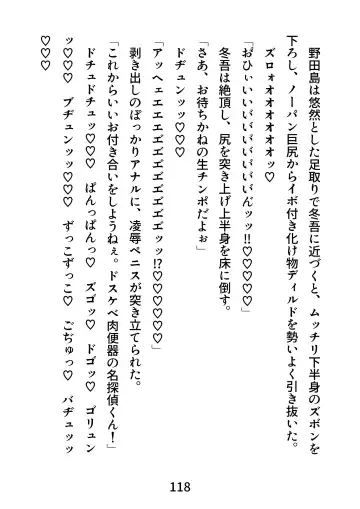 野田島は悠然とした足取りで冬吾に近づくと、ムッチリ下半身のズボンを
下ろし、ノーパン巨尻からイボ付き化け物ディルドを勢いよく引き抜いた。
ズロォオオオオオオッ♡
「おひぃいいい゛い゛い゛い゛い゛い゛んッッ!!♡♡♡♡♡」
冬吾は絶頂し、尻を突き上げ上半身を床に倒す。
「さあ、お待ちかねの生チンポだよぉ」
ドヂュンッッ♡♡♡
「アッヘェエエエエ゛エ゛エ゛エ゛エ゛エ゛ッッ!?♡♡♡♡♡♡」
剥き出しのぽっかりアナルに、凌辱ペニスが突き立てられた。
「これからいいお付き合いをしようねぇ。ドスケベ肉便器の名探偵くん!」
ドチュドチュッ♡♡♡　ぱんっぱんっ♡　ズゴッ♡　ドゴッ♡　ゴリュン
ッ♡♡♡♡　ブヂュンッッ♡♡♡♡　ずっこずっこ♡　ごぢゅっ♡　バヂュッッ
♡♡♡♡
118